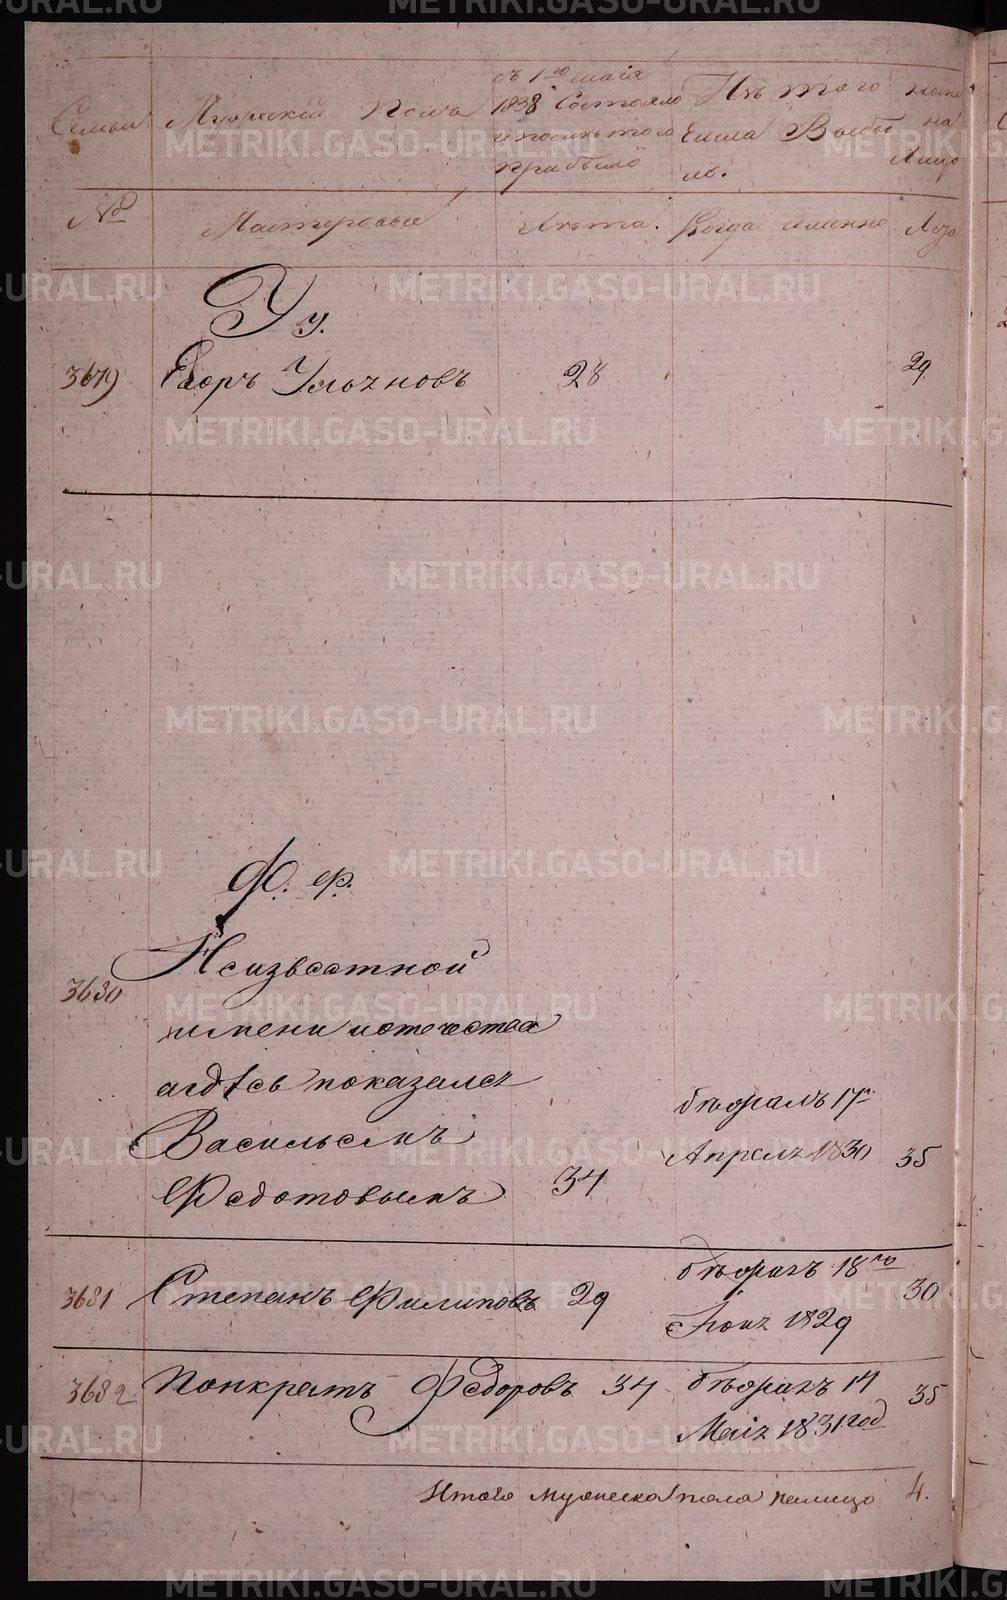 Семьи
Мужескій Полъ
съ 1го маія
1838 Состояло
и после того
прибыло
Изъ того
Числа Выбы
ло.
ныне
на
Лицо
№
Мастеровые
Лѣта.
Когда именно
Лѣта
У у.
3679 Егоръ Ульяновъ 28 29
Ф. ф.
3680 Неизвестной
имени и отечества
а здѣсь показался
Васильемъ
Федотовымъ 34
бѣжалъ 17го
Апреля 1830 35
3681 Степанъ Филиповъ 29 бѣжалъ 18го 30
Іюня 1829
3682 Понкратъ Федоровъ 34 бѣжалъ 14 35
Маія 1831 год
Итого мужеска пола налицо 4.
METRIKI.GASO-URAL.RU